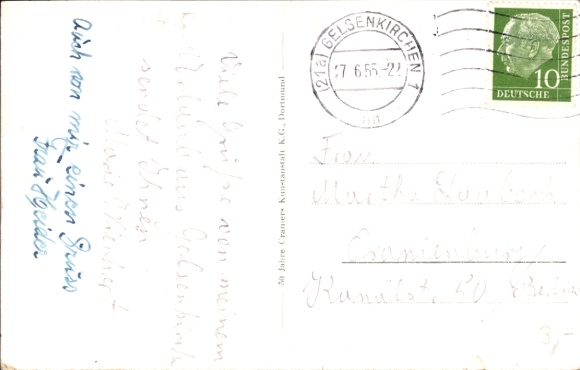 Auch von mir einen Gruss
Frau Heider
Viele Grüße von meinem
Urlaub aus Gelsenkirch
sendet Ihnen
50 Jahre Cramers Kunstanstalt K.G., Dortmund
(21a) GELSENKIRCHEN 1
17.6.55.-2
DEUTSCHE
BUNDESPOST
10
Frau
Martha
Oranienburg
Kanalst. 50
3,-